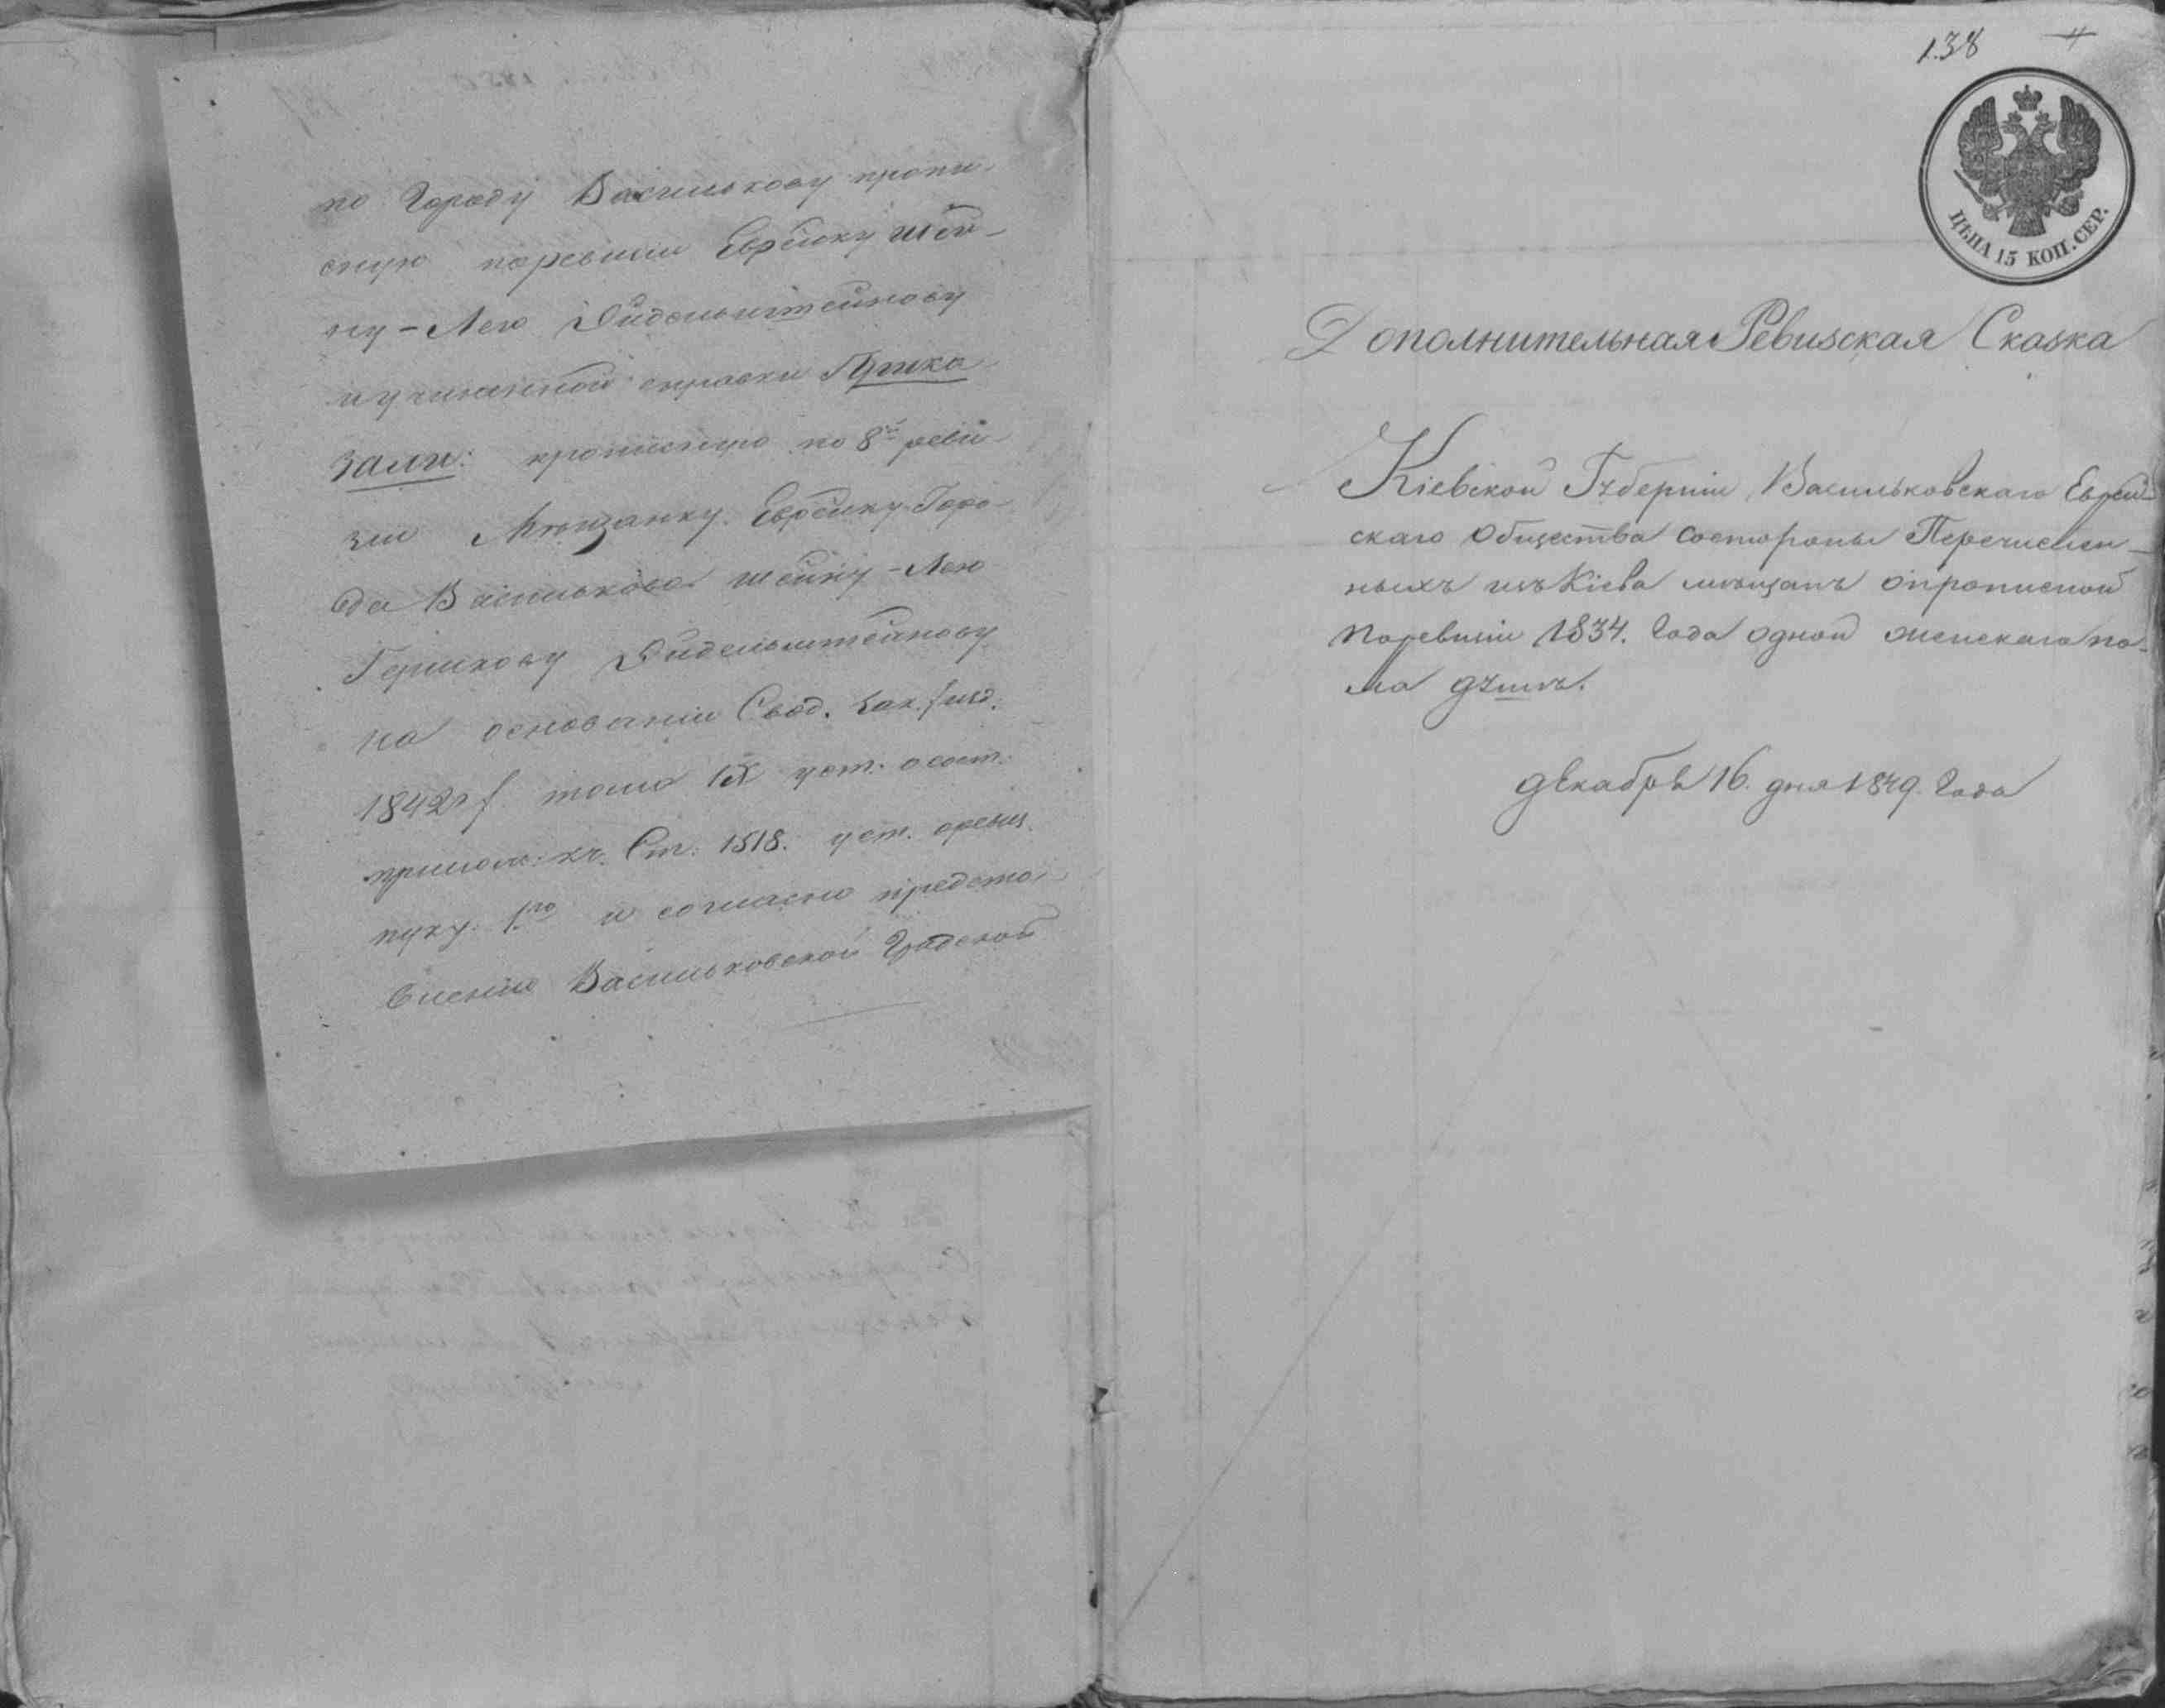 по Городу Василькову пропи-
сную по ревизіи Еврейку Шей-
ну-Лею Эйдельштейнову
и учиненной справки Прика-
зали: прописную по 8й реви-
зіи Мѣщанку Еврейку Горо-
да Василькова Шейну-Лею
Гершкову Эйдельштейнову
на основаніи Свод. Зак. /изд.
1842 г/ тома IX уст. о сост.
прилож: къ Ст: 1518. уст. о ревиз.
пунк. 1го и согласно предста-
вленію Васильковской Градской
138
ЦѢНА 15 КОП. СЕР.
Дополнительная Ревизская Сказка
Кіевской Губерніи Васильковскаго Еврей-
скаго Общества состороны Перечислен-
ныхъ изъ Кіева мѣщанъ опрописной
поревизіи 1834. Года одной женскаго по-
ла душѣ.
Декабря 16. дня 1849. Года